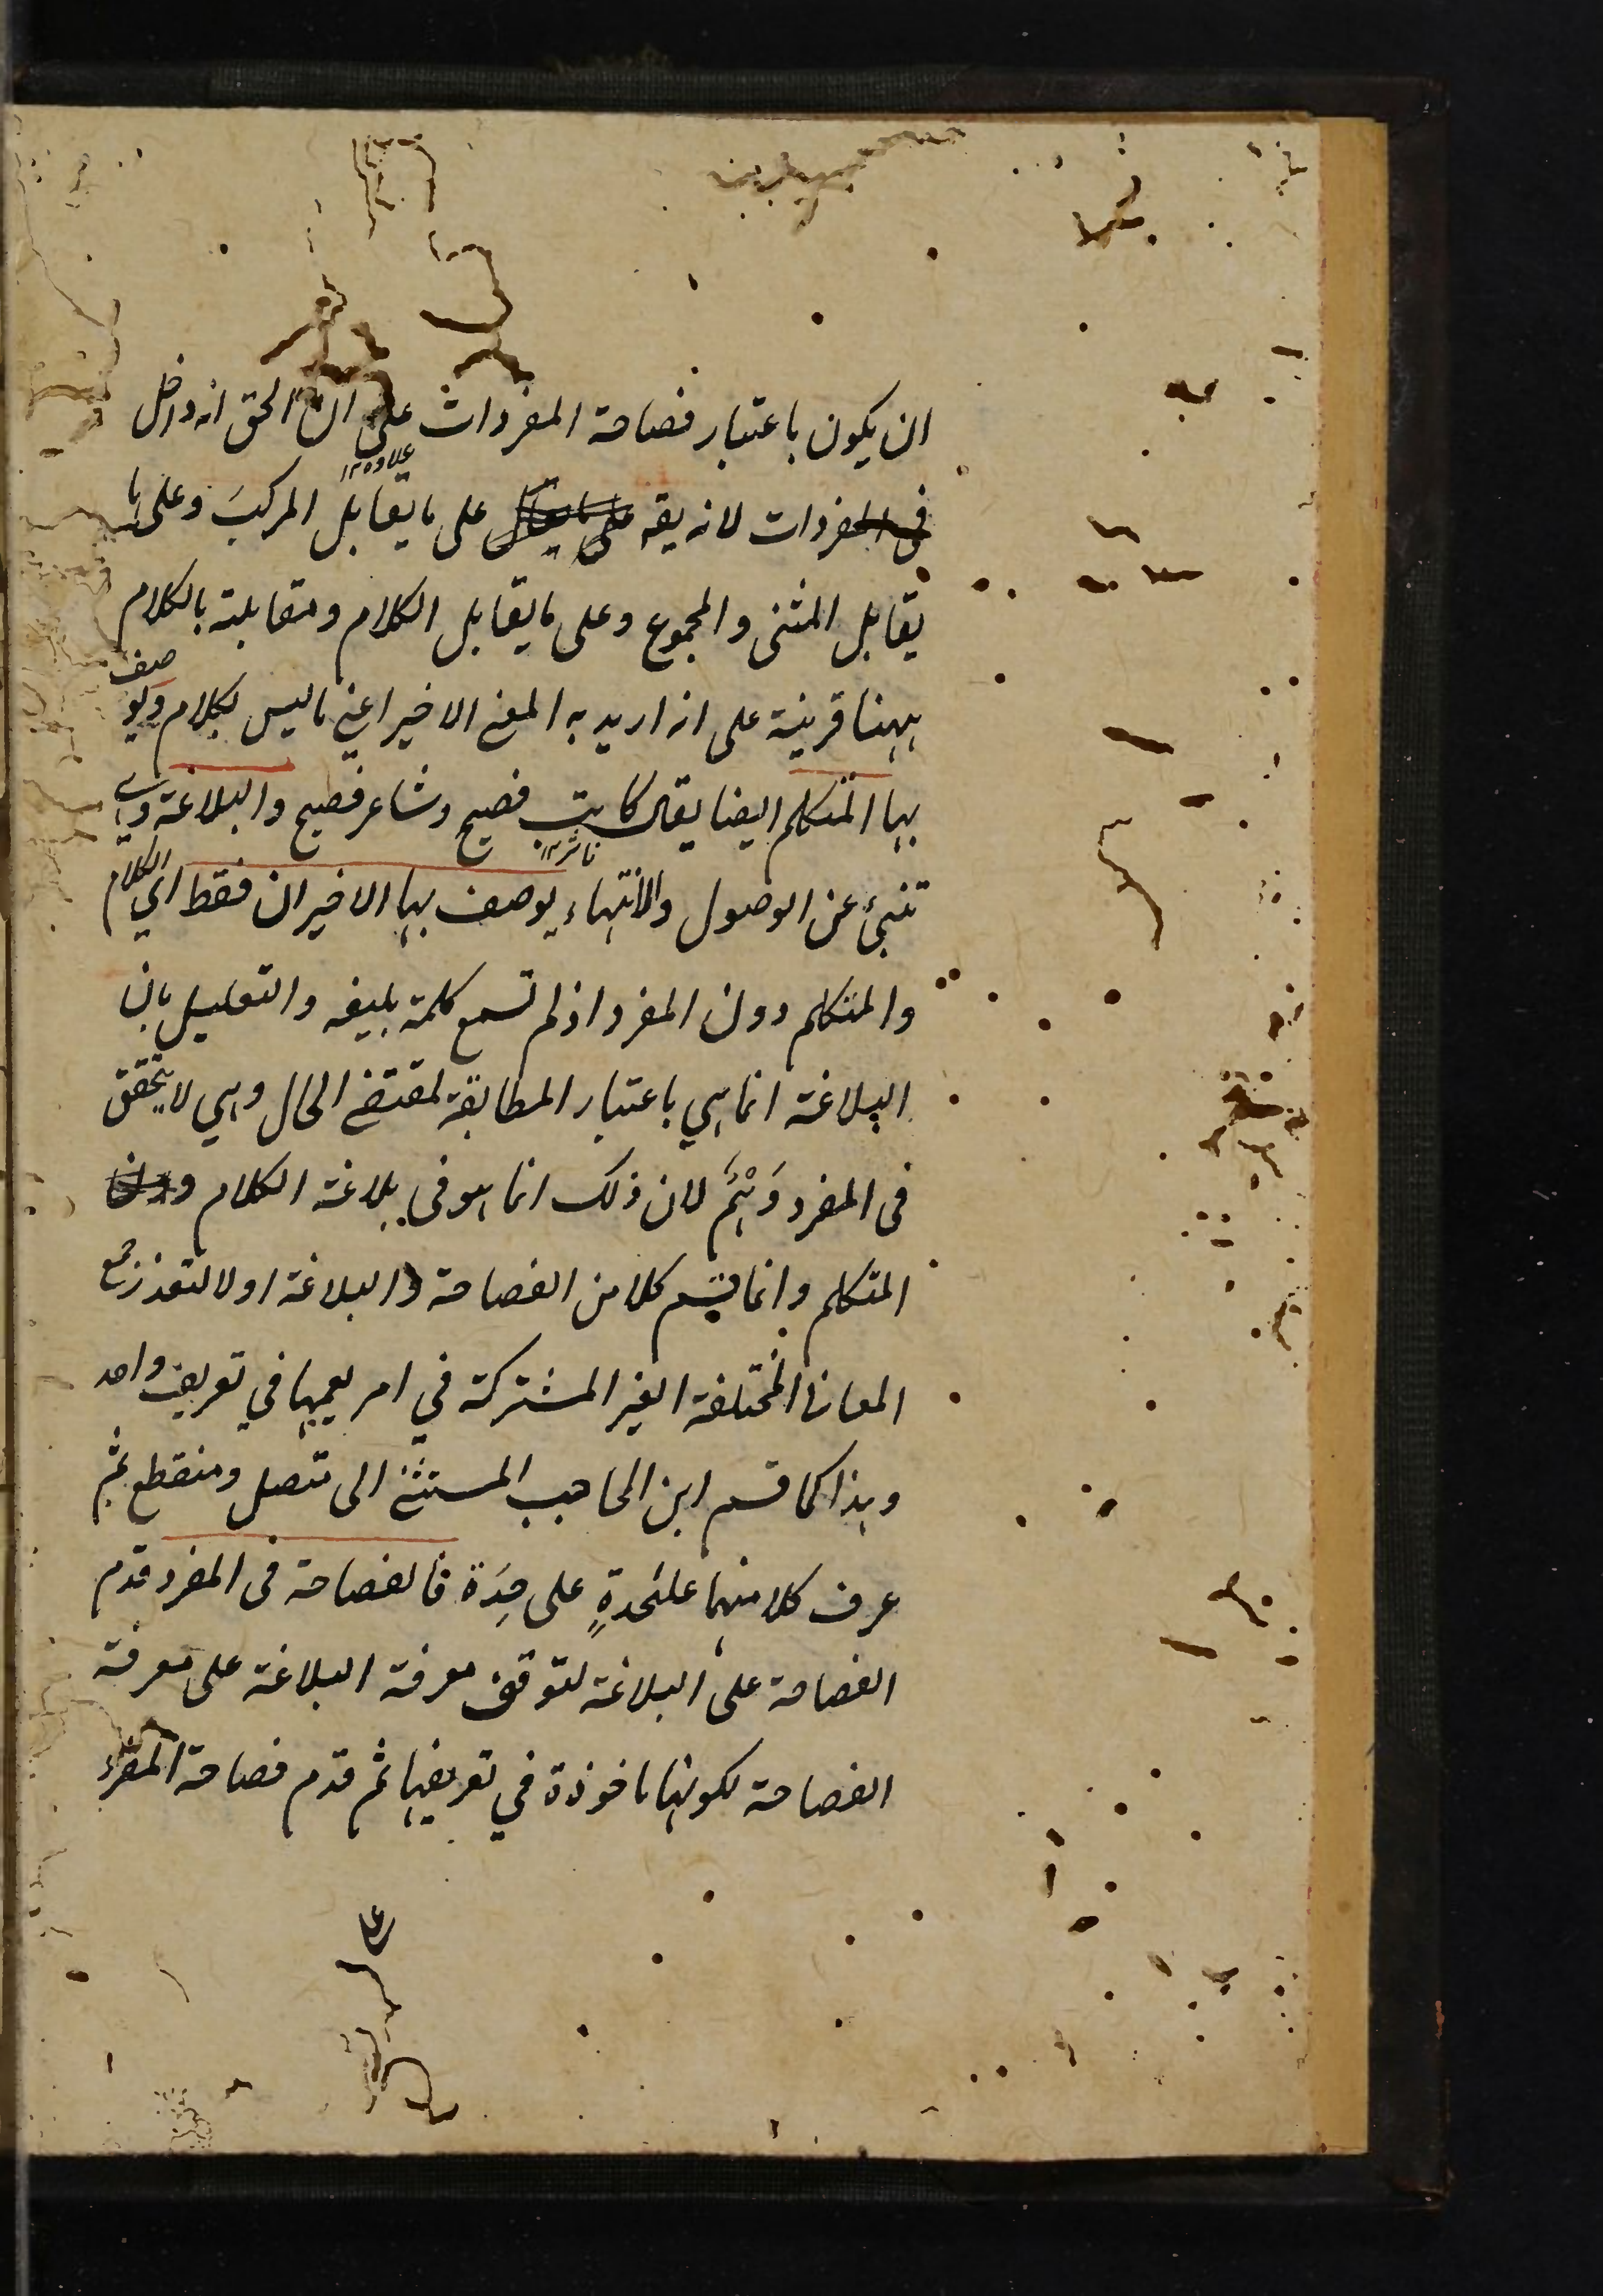 ان يكون باعتبار فصاحة المفردات على ان الحق انه داخل
علاوه ١٢
فى المفردات لانه يقه على ما يقابل على ما يقابل المركبَ وعلى ما
يقابل المثنى والمجموع وعلى ما يقابل الكلام ومقابلته بالكلام
ههنا قرينة على انه اريد به المعنى الاخير اعني ما ليس بكلام ويوصف
بها المتكلم ايضا يقال كاتب فصيح وشاعر فصيح والبلاغة وهي
ناثر ١٢
تنبئ عن الوصول والانتهاء يوصف بها الاخيران فقط اي الكلام
والمتكلم دون المفرد اذ لم تسمع كلمة بليغه والتعليل بان
البلاغة انما هي باعتبار المطابقة لمقتضى الحال وهي لا يتحقق
فى المفرد وَهْمٌ لان ذلك انما هو فى بلاغة الكلام و
المتكلم وانما قسم كلا من الفصاحة والبلاغة اولا لتعذر جمع
المعانى المختلفة الغير المشتركة في امر يعمها في تعريف واحد
وهذا كما قسم ابن الحاجب المستثنى الى متصل ومنقطع ثم
عرف كلا منهما علىٰحدةٍ على حِدَة فالفصاحة فى المفرد قدم
الفصاحة على البلاغة لتوقف معرفة البلاغة على معرفة
الفصاحة لكونها ماخوذة في تعريفها ثم قدم فصاحة المفرد